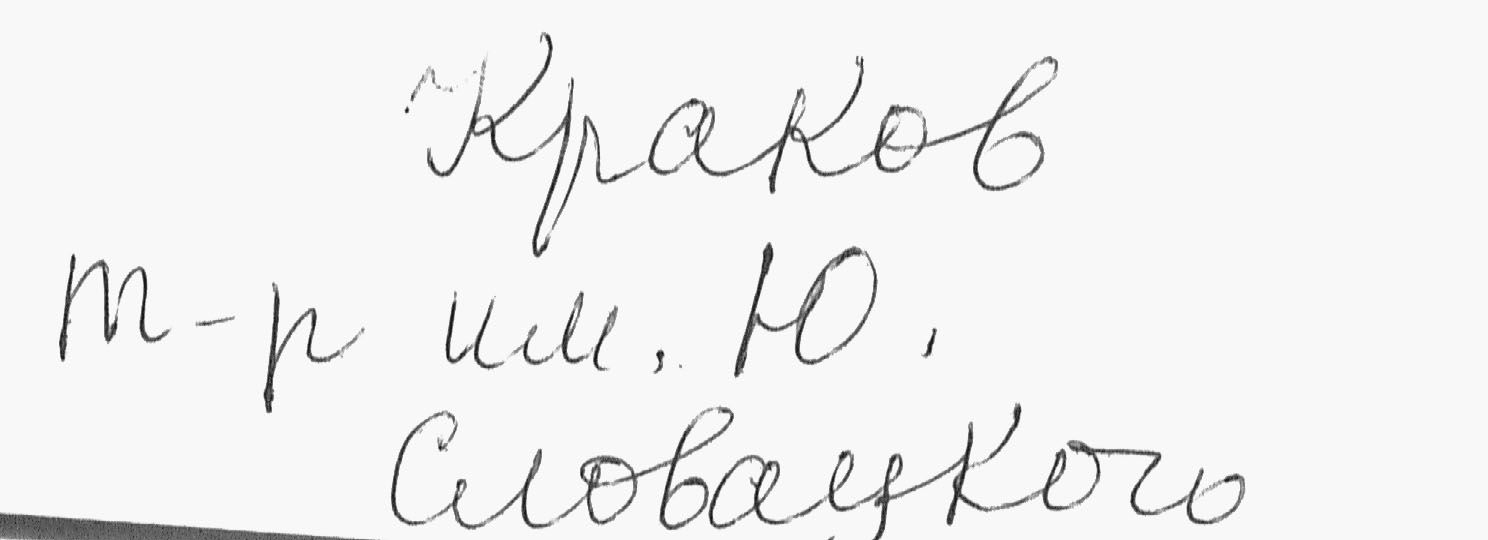 Краков
т-р им. Ю.
Словацкого